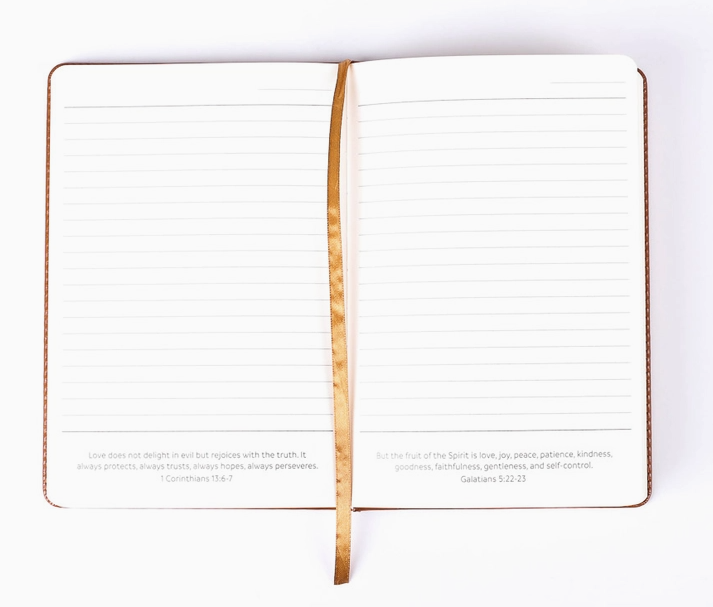 Love does not delight in evil but rejoices with the truth. It
always protects, always trusts, always hopes, always perseveres.
1 Corinthians 13:6-7
But the fruit of the Spirit is love, joy, peace, patience, kindness,
goodness, faithfulness, gentleness, and self-control.
Galatians 5:22-23